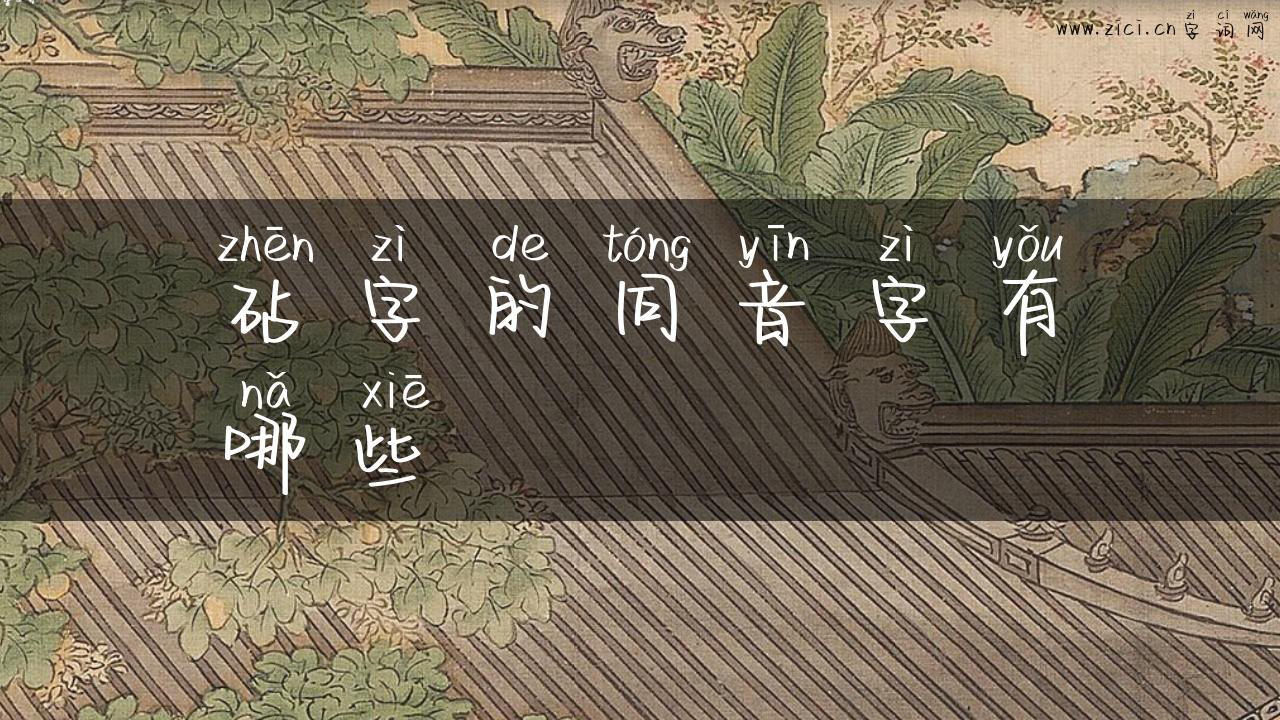 zì cí wǎng
www.zici.cn 字词网
zhēn zì de tóng yīn zì yǒu
砧字的同音字有
nǎ xiē
哪些